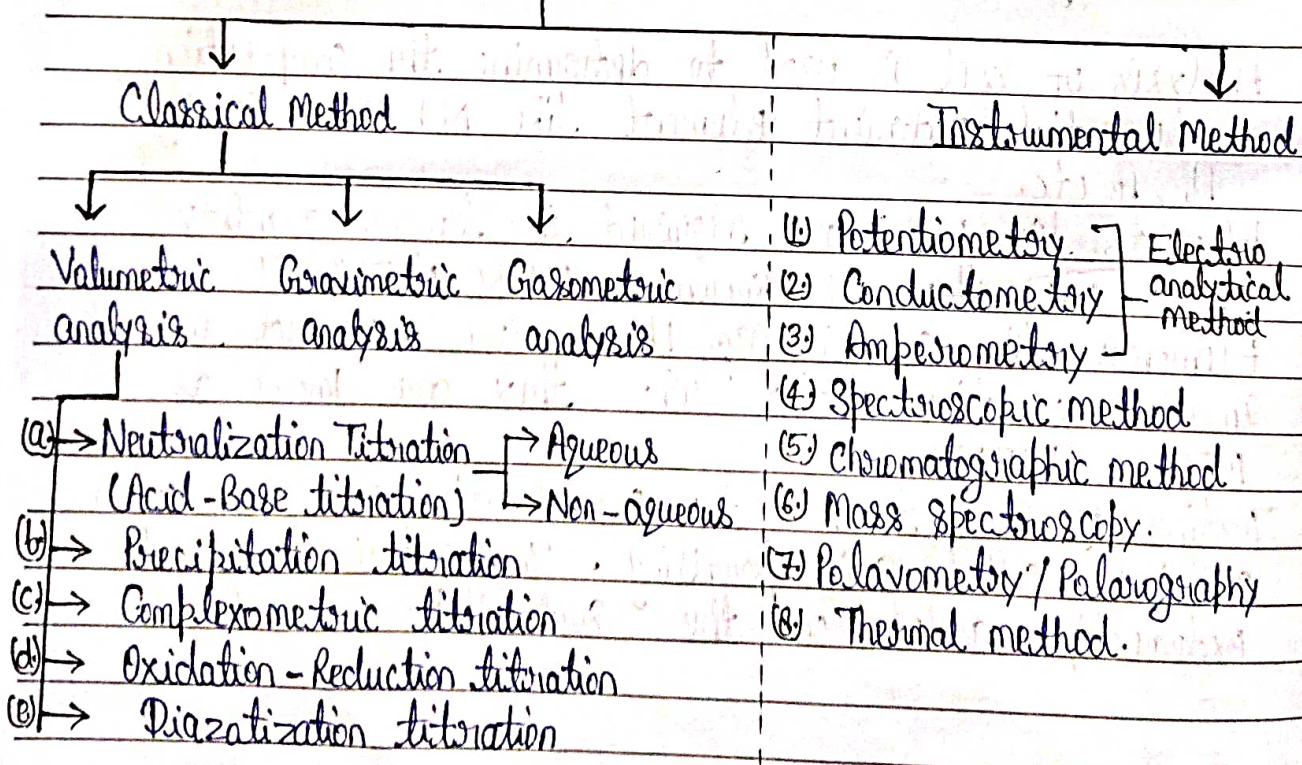 Classical Method
Instrumental Method
Valumetric Gravimetric Gasometric
analysis analysis analysis
(a) → Neutralization Titration → Aqueous
(Acid-Base titration) → Non-aqueous
(b) → Precipitation titration
(c) → Complexometric titration
(d) → Oxidation-Reduction titration
(e) → Diazatization titration
(1.) Potentiometry.
(2.) Conductometry
(3.) Amperometry
Electro
analytical
Method
(4.) Spectroscopic method
(5.) Chromatographic method
(6.) Mass spectroscopy.
(7.) Palavometry / Palarography
(8.) Thermal method.